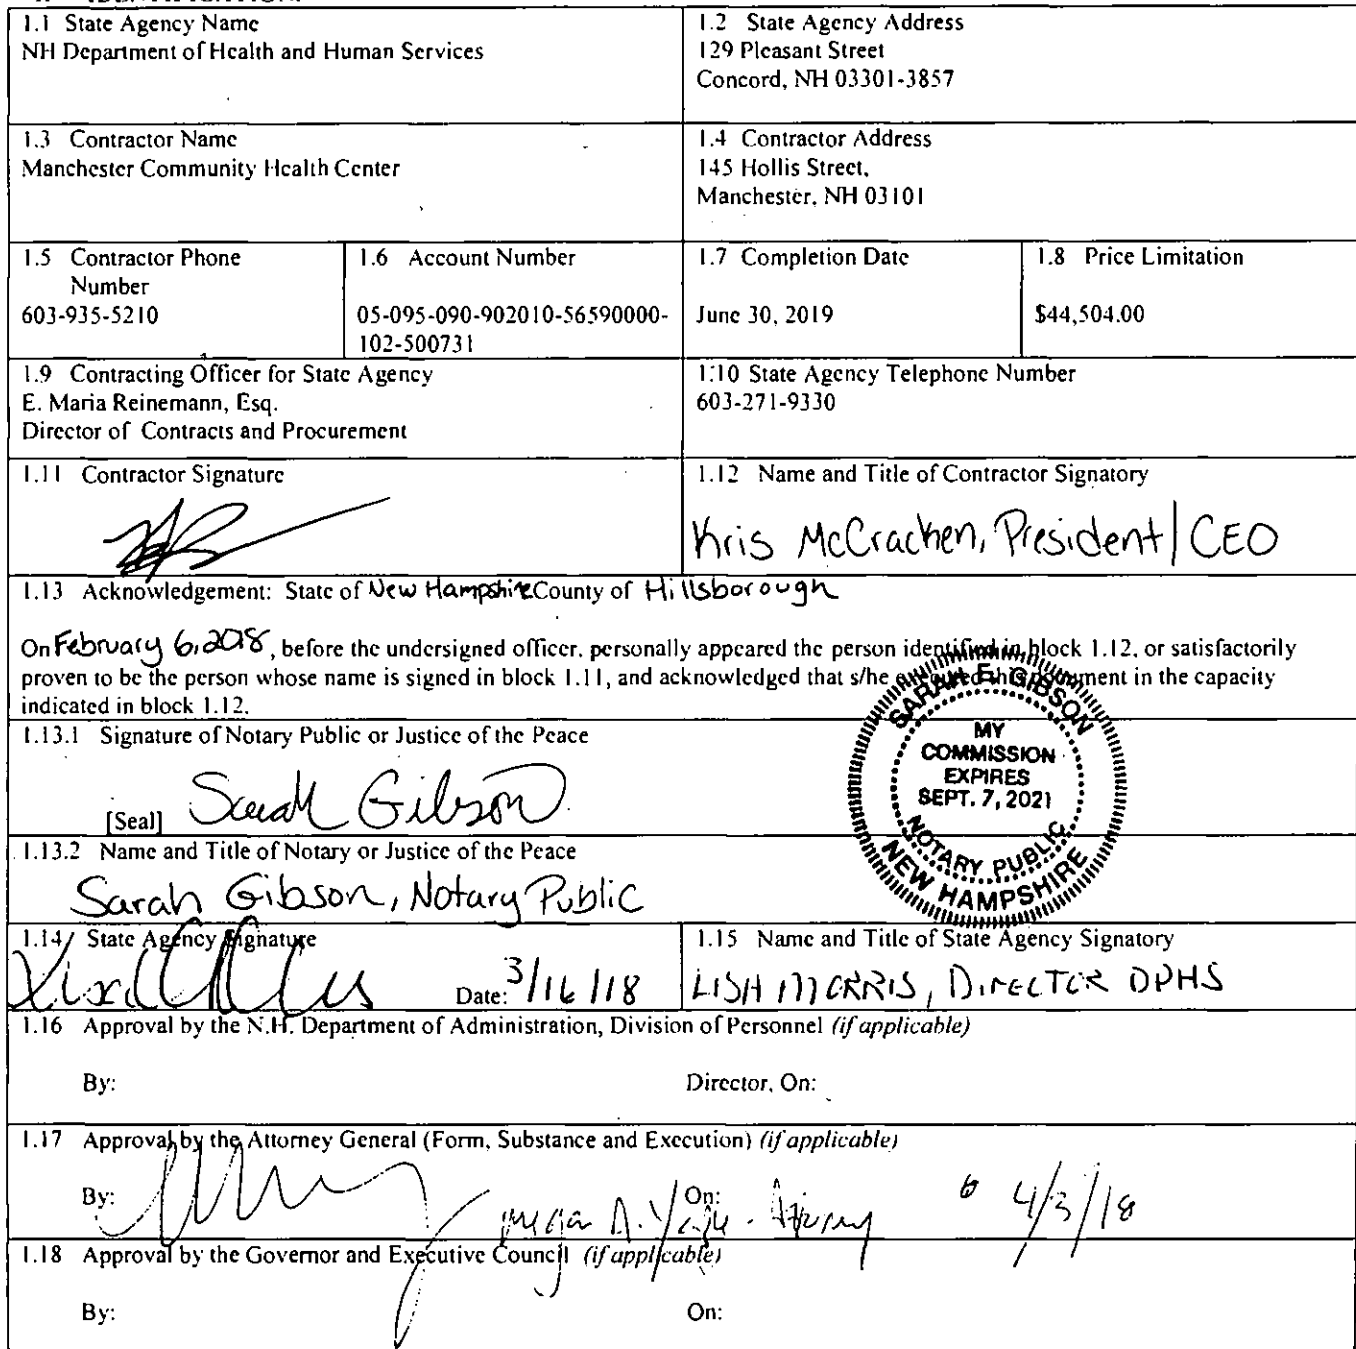 1.1 State Agency Name
NH Department of Health and Human Services
1.2 State Agency Address
129 Pleasant Street
Concord, NH 03301-3857
1.3 Contractor Name
Manchester Community Health Center
1.4 Contractor Address
145 Hollis Street,
Manchester, NH 03101
1.5 Contractor Phone
Number
603-935-5210
1.6 Account Number
05-095-090-902010-56590000-
102-500731
1.7 Completion Date
June 30, 2019
1.8 Price Limitation
$44,504.00
1.9 Contracting Officer for State Agency
E. Maria Reinemann, Esq.
Director of Contracts and Procurement
1.10 State Agency Telephone Number
603-271-9330
1.11 Contractor Signature
1.12 Name and Title of Contractor Signatory
Kris McCracken, President/CEO
1.13 Acknowledgement: State of New Hampshire County of Hillsborough
On February 6, 2018, before the undersigned officer, personally appeared the person identified in block 1.12, or satisfactorily
proven to be the person whose name is signed in block 1.11, and acknowledged that s/he executed this document in the capacity
indicated in block 1.12.
1.13.1 Signature of Notary Public or Justice of the Peace
[Seal] Sarah Gibson
SARAH E. GIBSON
MY
COMMISSION
EXPIRES
SEPT. 7, 2021
NOTARY PUBLIC
NEW HAMPSHIRE
1.13.2 Name and Title of Notary or Justice of the Peace
Sarah Gibson, Notary Public
1.14 State Agency Signature
Date: 3/16/18
1.15 Name and Title of State Agency Signatory
LISA MORRIS, DIRECTOR DPHS
1.16 Approval by the N.H. Department of Administration, Division of Personnel (if applicable)
By:
Director, On:
1.17 Approval by the Attorney General (Form, Substance and Execution) (if applicable)
By:
On:
Megan A. - Attorney 4/3/18
1.18 Approval by the Governor and Executive Council (if applicable)
By:
On: